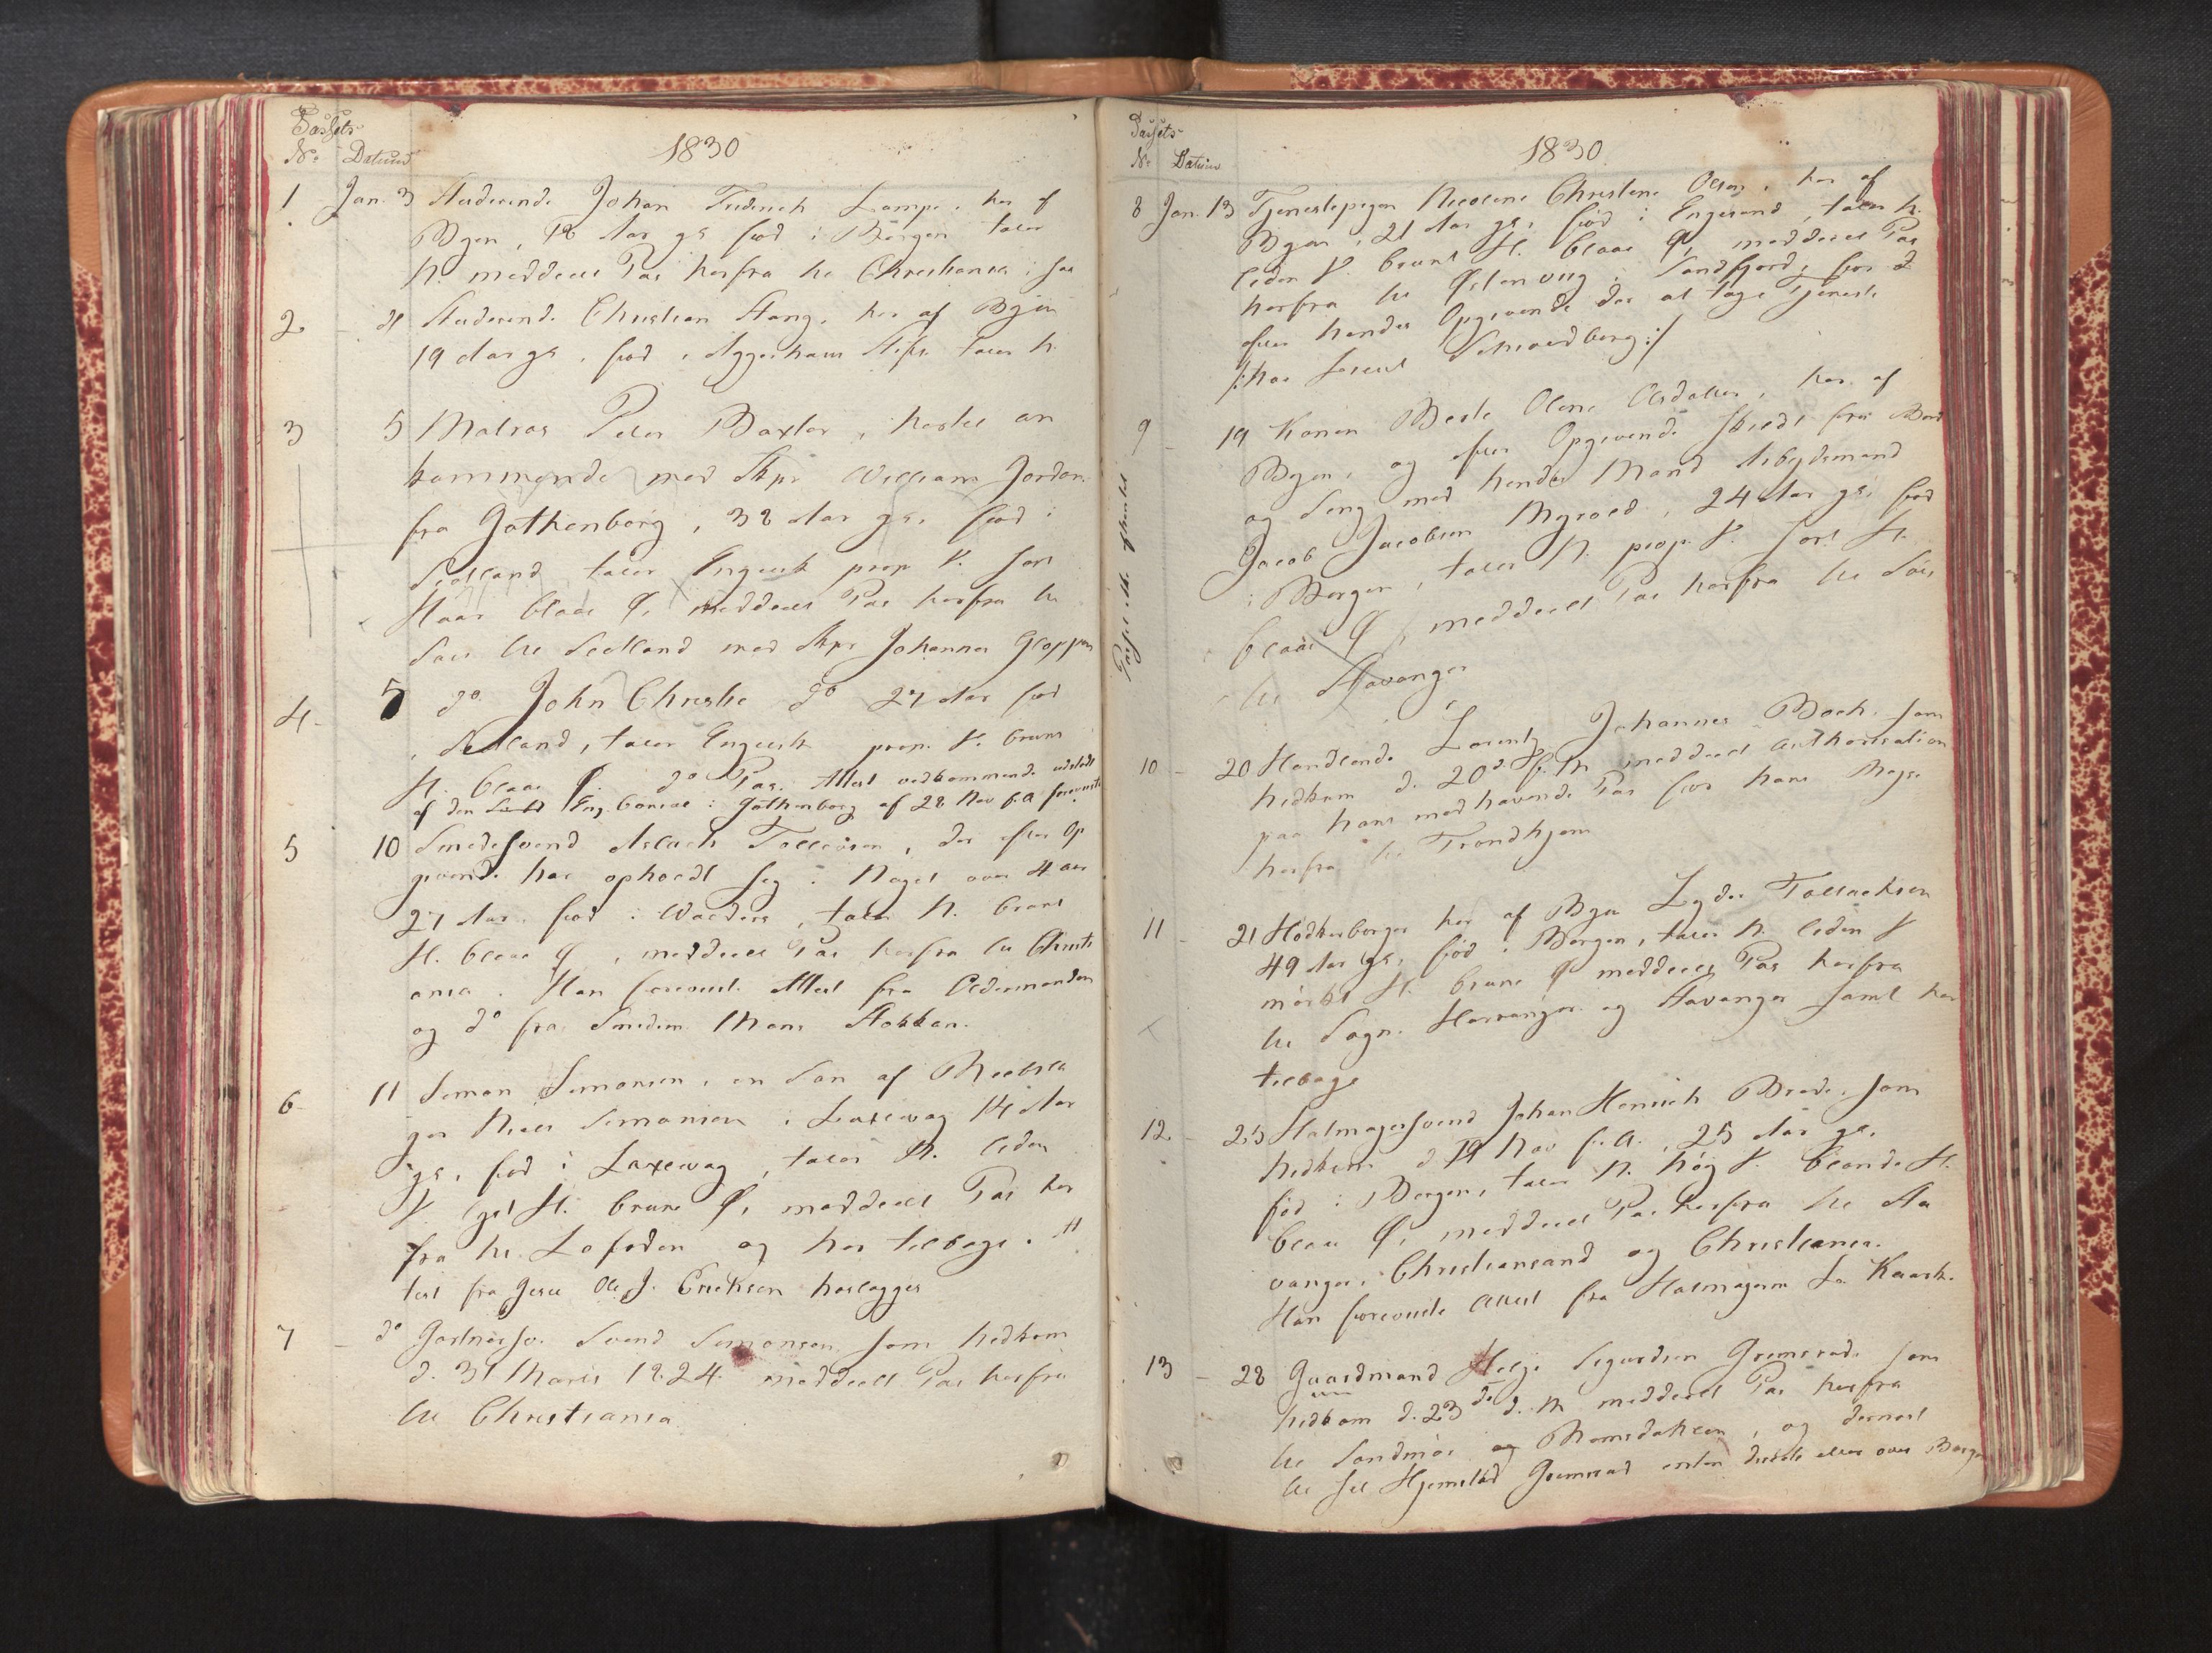 Passets
No Datum
1830
1 Jan. 3 Studerende Johan Friderich Lampe, her af
Byen, 18 Aar gl. fød i Bergen taler
N. meddeelt Pas herfra til Christiania
2 d Studerende Christian Stang, her af Byen
19 Aar gl. fød i Aggerhuus Stift taler N
3 5 Matros Peter Baxter, hertil an
kommende med Skpr William Jordan
fra Gothenborg, 38 Aar gl. fød i
Skotland taler Engelsk prop V. sort
Haar blaae Ø, meddeelt Pas herfra til
Søes til Skotland med Skpr Johannes Gloppen
4 5 do John Christie do 27 Aar fød
i Skotland, taler Engelsk prop. V. bruunt
H. blaae Ø. do Pas. Attest vedkommende udstedt
af den Eng. Consul i Gothenborg af 28 Nov f. A foreviist
5 10 Smedesvend Aslach Tollevsen, der efter Op
givende har opholdt sig i Riget over 4 Aar
27 Aar fød i Walders, taler N. bruunt
H. blaae Ø, meddeelt Pas herfra til Christi
ania. Han foreviiste Attest fra Oldermanden
og do fra Smedem. Mons Stokken.
6 11 Simon Simonsen, en Søn af Reebsla
ger Niels Simonsen i Laxevag 14 Aar
gl, fød i Laxevag, taler N. liden
V. gul H. brune Ø, meddeelt Pas her
fra til Lofoden og her tilbage. At
test fra Ole J. Erichsen
7 do Gartnersv. Svend Simonsen som hidkom
d. 31 Marts 1824 meddeelt Pas herfra
til Christiania
Passets
No Datum
1830
8 Jan. 13 Tjenestepigen Nicoline Christine Olsen, her af
Byen, 21 Aar gl. fød i Engesund, taler N.
liden V. bruunt H. blaae Ø, meddeelt Pas
herfra til i Sandfjord, for
efter hendes Opgivende der at tage Tjeneste
hos
9 19 Konen Berte Oline Olsdatter, her af
Byen, og efter Opgivende skildt fra Bord
og Seng med hendes Mand Arbeydsmand
Jacob Jacobsen, 24 Aar gl. fød
i Bergen, taler N. prop. V. sort H.
blaae Ø, meddeelt Pas herfra til Søes
til Stavanger
10 20 Handlende Lorentz Johannes Boch som
hidkom d. 20de f. M meddeelt Authorisation
paa hans medhavende Pas for hans Rejse
herfra til Trondhjem
11 21 Høkerborger her af Byen Lyder Tollachsen
49 Aar gl. fød i Bergen, taler N. liden V
mørkt H. brune Ø meddeelt Pas herfra
til Sogn. Hardanger og Stavanger samt her
tilbage
12 25 Hatmagersvend Johan Henrich Brede som
hidkom d 19 Nov f. A., 25 Aar gl.
fød i Bergen, taler N. høy V. blonde H.
blaae Ø, meddeelt Pas herfra til Sta
vanger, Christiansand og Christiania.
Han foreviiste Attest fra Hatmagerm
13 28 Gaardmand Helge Sigurdsen Grimerad som
hidkom d. 23de d. M meddeelt Pas herfra
til Søndmør og Romsdahlen, og dernæst
til sit Hjemsted Grimerad enten directe eller over Bergen